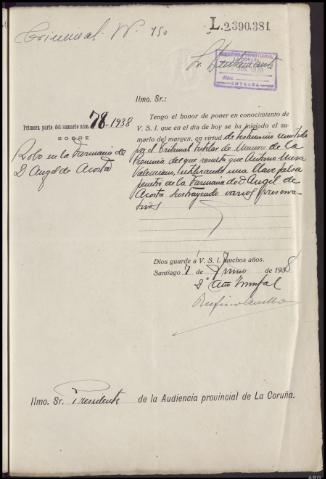 L.2.390.381
Criminal Nº 150
Ilmo. Sr.:
Tengo el honor de poner en conocimiento de
V. S. I. que en el día de hoy se ha iniciado el su-
mario del margen, en virtud de testimonio remitido
por el Tribunal tutelar de Menores de La
Coruña del que resulta que Antonio
utilizando una llave falsa
penetró en la Farmacia de D. Angel de
Acosta sustrayendo varios
Primera parte del sumario núm. 78-1938
SOBRE
Robo en la Farmacia de
D. Angel de Acosta
Dios guarde a V. S. I. muchos años.
Santiago 7 de Junio de 1938
IIº Año Triunfal
Ilmo. Sr. Presidente de la Audiencia provincial de La Coruña.